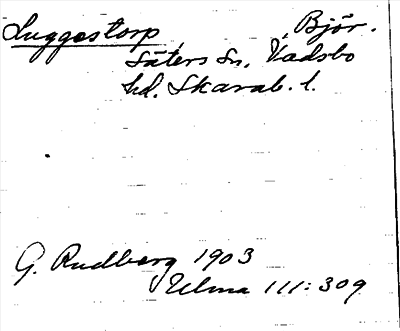 Luggestorp, Björ.
Säters sn, Vadsbo
hd. Skarab. l.
G. Rudberg 1903
Ulma 111:309